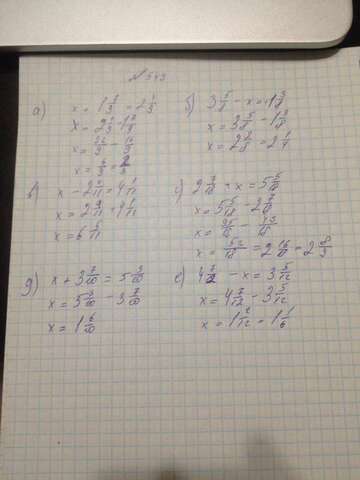 № 543
а)
x - 
x = 2
x =
x =
б) 3 5/8 - x = 1 3/8
x = 3 5/8 - 1 3/8
x = 2 2/8 = 2 1/4
в) x - 2 4/11 = 4 1/11
x = 2 4/11 + 4 1/11
x = 6 5/11
г) 2 7/18 + x = 5 5/18
x = 5 5/18 - 2 7/18
x = 95/18 - 43/18
x = 52/18 = 2 16/18 = 2 8/9
д) x + 3 7/10 = 5 3/10
x = 5 3/10 - 3 7/10
x = 1 6/10
е) 4 7/12 - x = 3 5/12
x = 4 7/12 - 3 5/12
x = 1 2/12 = 1 1/6